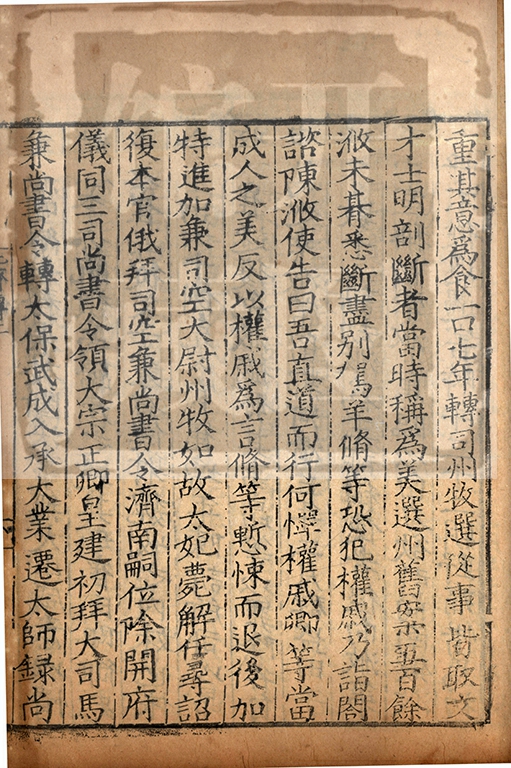 重其意爲食一口七年轉司州牧選從事皆取文
才士明剖斷者當時稱爲美選州舊案五百餘
浟未朞悉斷盡别駕羊脩等恐犯權戚乃詣閤
諮陳浟使告曰吾直道而行何憚權戚卿等當
成人之美反以權戚爲言脩等慙悚而退後加
特進加兼司空太尉州牧如故太妃薨解任尋詔
復本官俄拜司空兼尚書令濟南嗣位除開府
儀同三司尚書令領大宗正卿皇建初拜大司馬
兼尚書令轉太保武成入承大業遷太師録尚